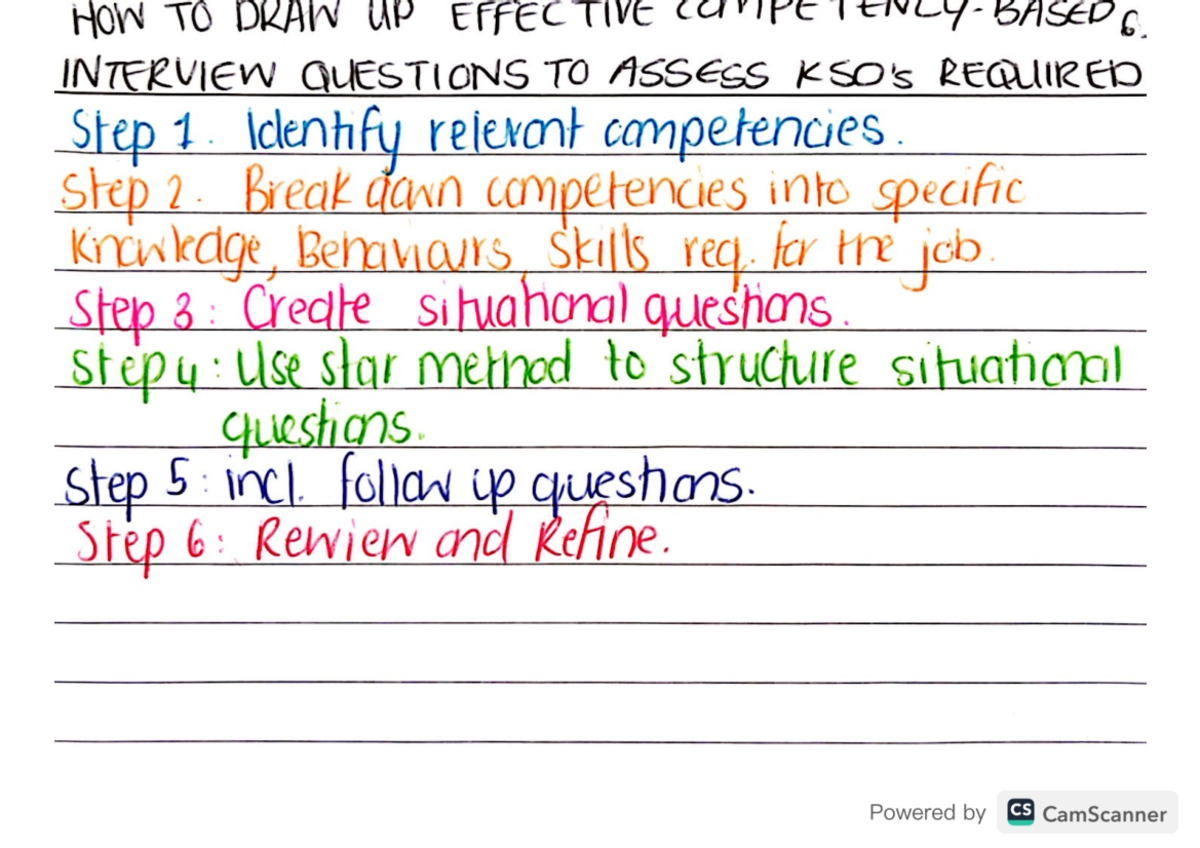 HOW TO DRAW UP EFFECTIVE COMPETENCY-BASED 6.
INTERVIEW QUESTIONS TO ASSESS KSO's REQUIRED
Step 1. Identify relevant competencies.
Step 2. Break down competencies into specific
Knowledge, Behaviours, Skills req. for the job.
Step 3: Create situational questions.
Step 4: Use star method to structure situational
questions.
Step 5: incl. follow up questions.
Step 6: Rewiew and Refine.
Powered by CS CamScanner